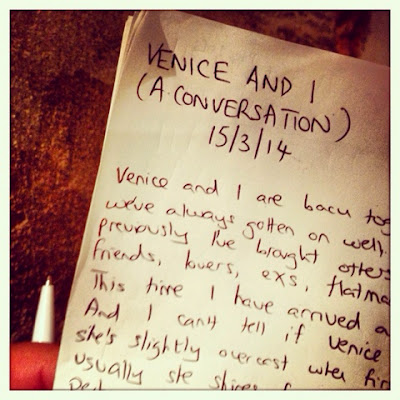 VENICE AND I
(A CONVERSATION)
15/3/14
Venice and I are back tog
we've always gotten on well.
previously I've brought others
friends, lovers, exs, flatma
This time I have arrived a
And I can't tell if Venice
she's slightly overcast when fir
usually she shines